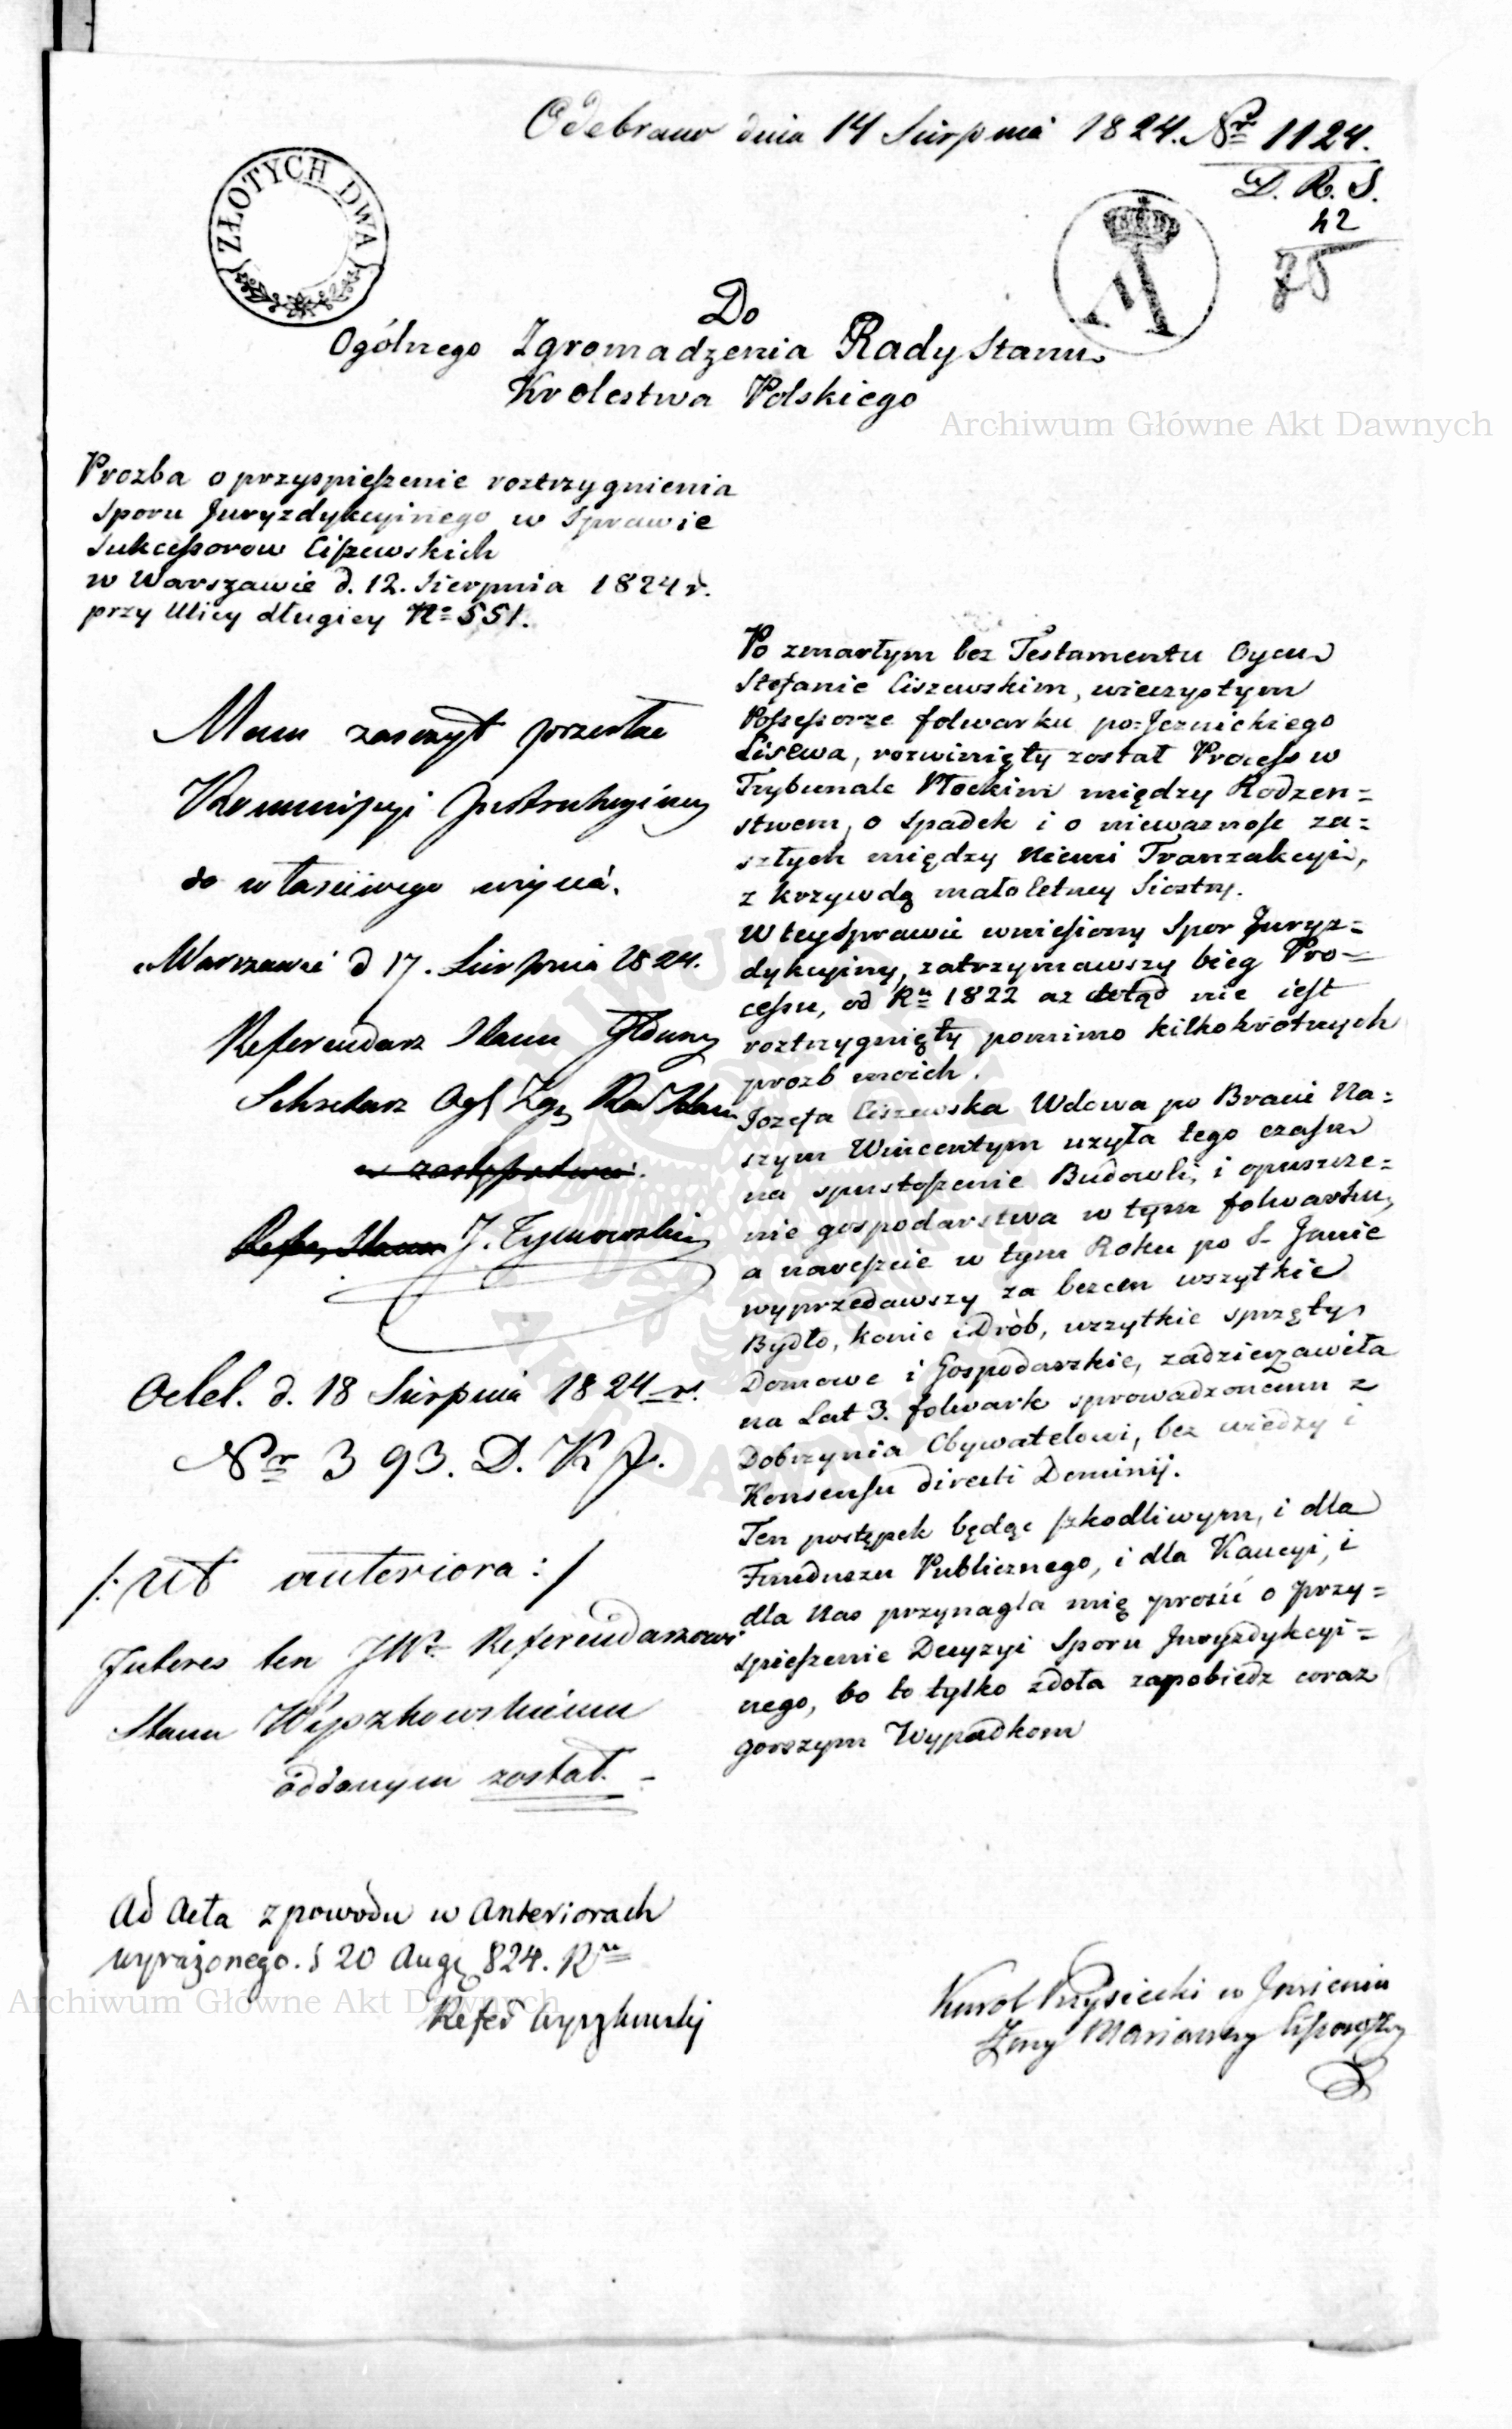 Odebrano dnia 14 Sierpnia 1824. Nr 1124.
D. R. S.
42
75
ZŁOTYCH DWA
A
Do
Ogólnego Zgromadzenia Rady Stanu
Krolestwa Polskiego
Archiwum Główne Akt Dawnych
Prozba o przyspieszenie roztrzygnienia
sporu Juryzdykcyinego w Sprawie
Sukcessorow Ciszewskich
w Warszawie d. 12. Sierpnia 1824 r.
przy Ulicy długiey No 551.
Mam zaszczyt przesłać
Kommissyi Instrukcyiney
do właściwego użycia.
Warszawa d 17. Sierpnia 1824.
Referendarz Stanu
Sekretarz Ogl Zgr Rad Stanu
w zastępstwie
Refer. Stanu J. Tymowski
Odel. d. 18 Sierpnia 1824 r.
Nr 393. D. K J.
/: Ut anteriora :/
Interes ten JWu Referendarzowi
Stanu Wyszkowskiemu
oddanym został. -
Ad Acta z powodu w Anteriorach
wyrażonego. d 20 Aug 824. Ru
Refer Wyszkowski
Po zmarłym bez Testamentu Oycu
Stefanie Ciszewskim, wieczystym
Possessorze folwarku po-Jeznickiego
Lisewa, rozwinięty został Process w
Trybunale Płockim między Rodzen=
stwem, o Spadek i o niewaznosc za=
szłych między Niemi Tranzakcyi,
z krzywdą małoletney Siostry.
W tey Sprawie wniesiony Spor Juryz=
dykcyiny, zatrzymawszy bieg Pro=
cessu, od Ru 1822 az dotąd nie iest
roztrzygnięty pomimo kilkokrotnych
prozb moich.
Jozefa Ciszewska Wdowa po Bracie Na=
szym Wincentym uzyła tego czasu
na spustoszenie Budowli, i opuszcze=
nie gospodarstwa w tym folwarku,
a nareszcie w tym Roku po S. Janie
wyprzedawszy za bezcen wszytkie
Bydło, konie i Drób, wszytkie sprzęty
Domowe i Gospodarskie, zadzierzawiła
na Lat 3. folwark sprowadzonemu z
Dobrzynia Obywatelowi, bez wiedzy i
Konsensu directi Dominij.
Ten postępek będąc szkodliwym, i dla
Funduszu Publicznego, i dla Kaucyi, i
dla Nas przynagla mię prosić o przy=
spieszenie Decyzyi Sporu Juryzdykcyi=
nego, bo to tylko zdoła zapobiedz coraz
gorszym Wypadkom
Karol Przysiecki w Imieniu
Zony Marianny
Archiwum Główne Akt Dawnych